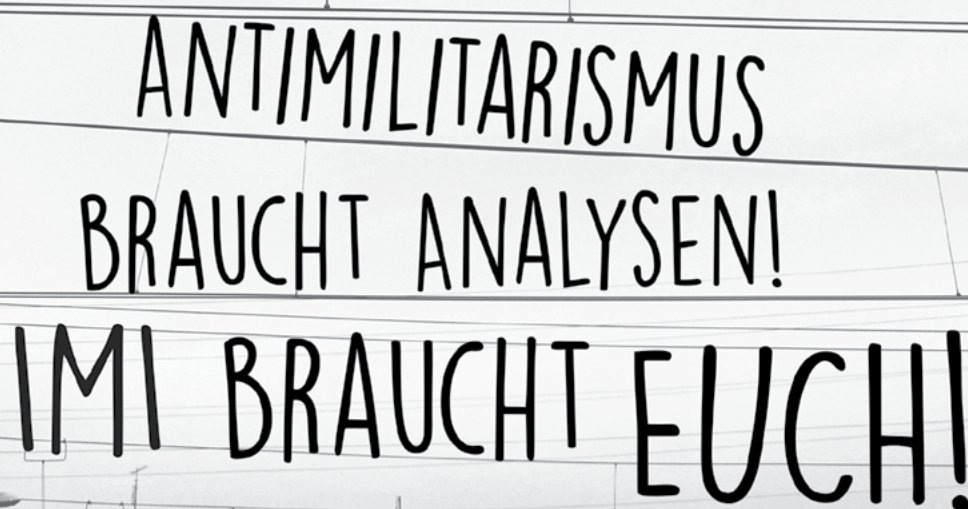 ANTIMILITARISMUS
BRAUCHT ANALYSEN!
IMI BRAUCHT EUCH!